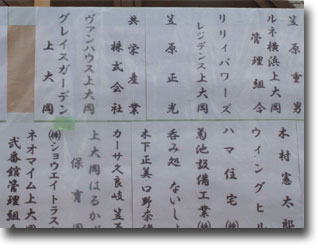 笠原重男
ルネ横浜上大岡
管理組合
リリイパワーズ
レジデンス上大岡
笠原正光
共栄産業
株式会社
ヴァンハウス上大岡
グレイスガーデン
上大岡
木村憲太郎
ウィングヒル
ハマ住宅㈱
菊池設備工業㈱
呑み処ないしょ
木下正美
カーサ久良岐
上大岡はるか
保育園
㈱ショウエイトラス
ネオマイム上大岡
武番館管理組合